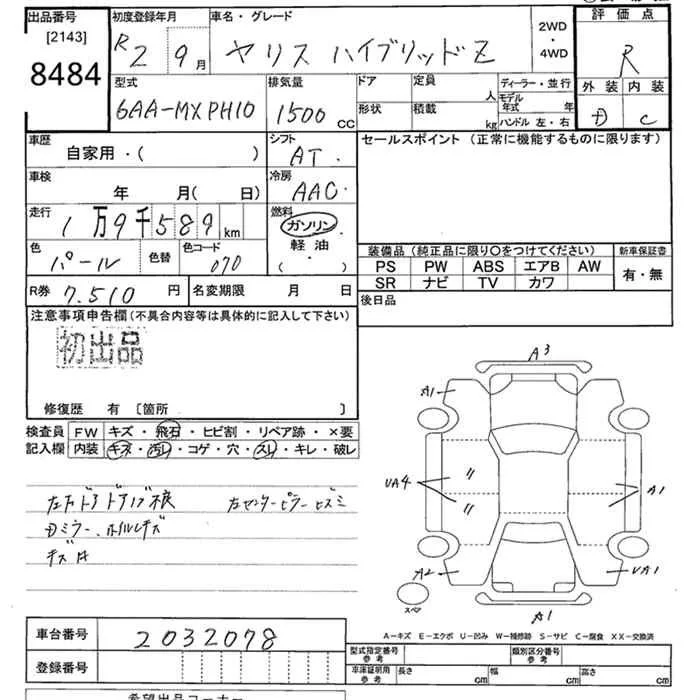 出品番号 初度登録年月 車名・グレード 2WD・4WD 評価点
[2143]
8484 R2 9月 ヤリス ハイブリッド Z R
型式 排気量 ドア 定員 人 ディーラー・並行 外装 内装
6AA-MXPH10 1500cc 形状 積載 kg モデル年式 年 ハンドル 左・右 D C
車歴 シフト セールスポイント (正常に機能するものに限ります)
自家用・( ) AT
車検 冷房
年 月( 日) AAC
走行 燃料
1万9千589km ガソリン
色 色替 色コード 軽油
パール 070 ( ・ )
装備品(純正品に限り○をつけてください) 新車保証書
PS PW ABS エアB AW 有・無
SR ナビ TV カワ
R券 7.510円 名変期限 月 日 後日品
注意事項申告欄(不具合内容等は具体的に記入して下さい)
初出品
修復歴 有 [箇所 ]
検査員 FW キズ・飛石・ヒビ割・リペア跡・×要
記入欄 内装 キズ・汚レ・コゲ・穴・スレ・キレ・破レ
左センターピラーヒズミ
Dミラー、ホイルキズ
A3
A1
UA4 A1
A2 UA1
スペア
A1
A-キズ E-エクボ U-凹み W-補修跡 S-サビ C-腐食 XX-交換済
車台番号 2032078
型式指定番号 参考 類別区分番号 参考
登録番号 車庫証明用 参考 長さ cm 幅 cm 高さ cm
希望出品コーナー